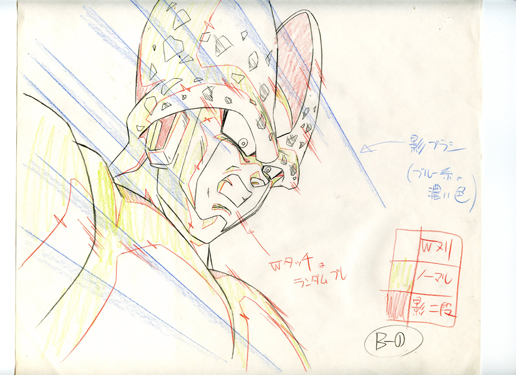 影ブラシ
(ブルー系の
濃い色)
Wタッチの
ランダムブレ
Wメリ
ノーマル
影二段
B-①